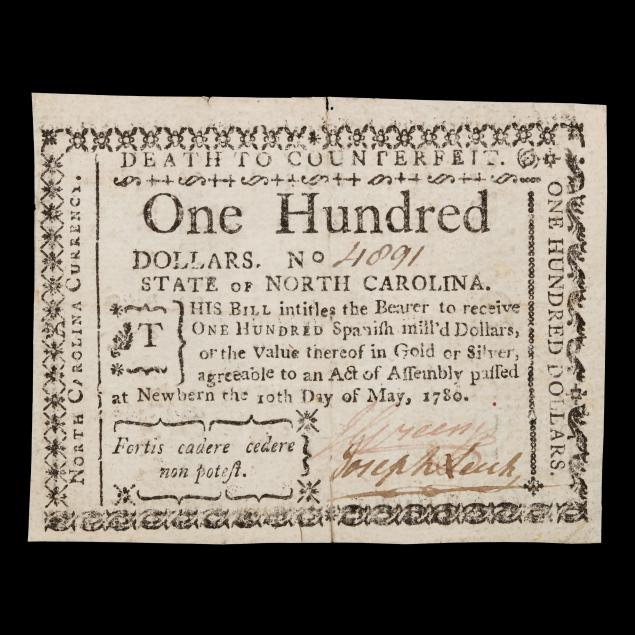 DEATH TO COUNTERFEIT.
One Hundred
DOLLARS. No 4891
STATE OF NORTH CAROLINA.
THIS BILL intitles the Bearer to receive
ONE HUNDRED Spanish mill'd Dollars,
or the Value thereof in Gold or Silver,
agreeable to an Act of Aſſembly paſſed
at Newbern the 10th Day of May, 1780.
Fortis cadere cedere
non poteſt.
Green
Joseph Leech
NORTH CAROLINA CURRENCY.
ONE HUNDRED DOLLARS.